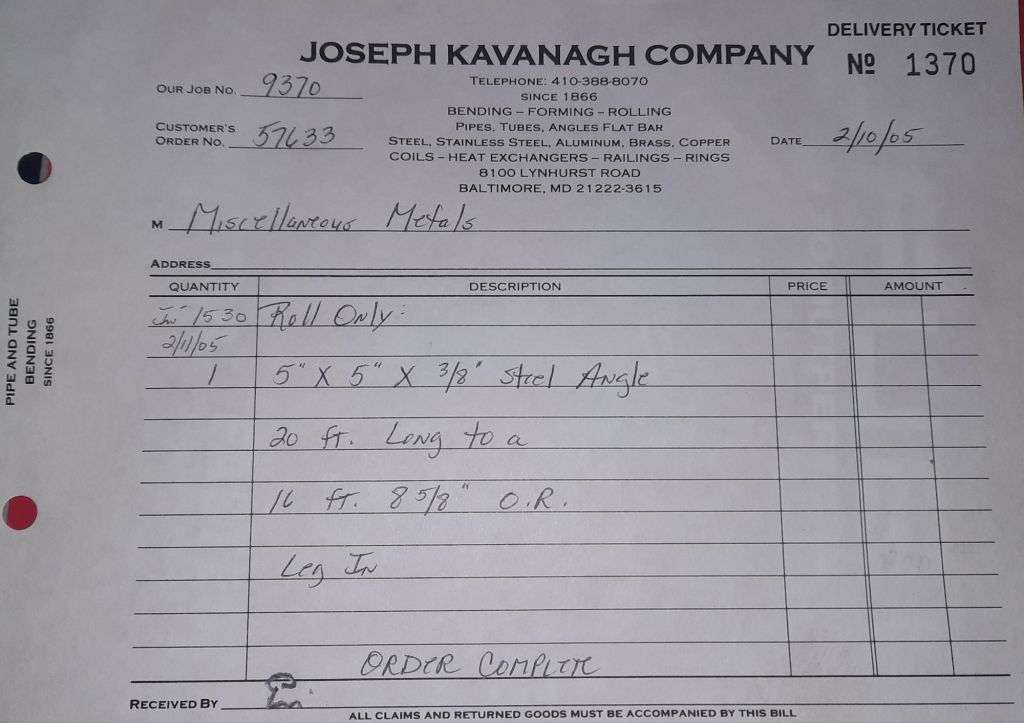 DELIVERY TICKET
JOSEPH KAVANAGH COMPANY
Nº 1370
TELEPHONE: 410-388-8070
OUR JOB NO. 9370
SINCE 1866
BENDING – FORMING – ROLLING
PIPES, TUBES, ANGLES FLAT BAR
CUSTOMER'S
ORDER NO. 57633
STEEL, STAINLESS STEEL, ALUMINUM, BRASS, COPPER
DATE 2/10/05
COILS – HEAT EXCHANGERS – RAILINGS – RINGS
8100 LYNHURST ROAD
BALTIMORE, MD 21222-3615
M Miscellaneous Metals
ADDRESS
QUANTITY DESCRIPTION PRICE AMOUNT
1530 Roll Only:
2/11/05
1 5" X 5" X 3/8" Steel Angle
20 ft. Long to a
16 ft. 8 5/8" O.R.
Leg In
ORDER COMPLETE
RECEIVED BY
ALL CLAIMS AND RETURNED GOODS MUST BE ACCOMPANIED BY THIS BILL
PIPE AND TUBE
BENDING
SINCE 1866